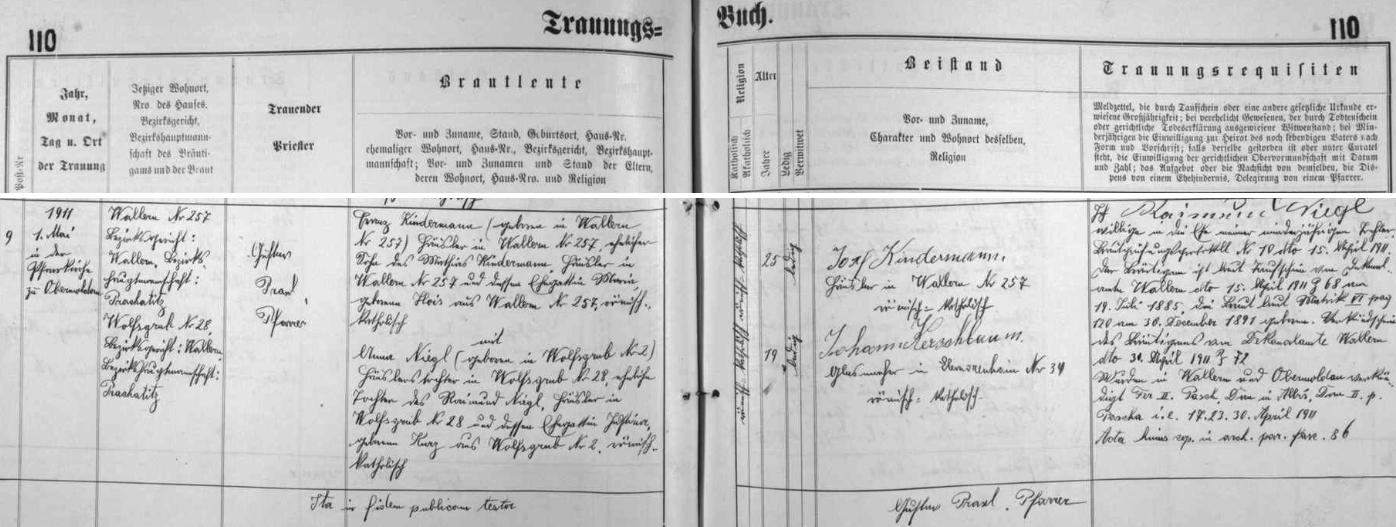 110
Trauungs=
Buch.
110
Post-Nr
Jahr,
Monat,
Tag u. Ort
der Trauung
Jetziger Wohnort,
Nro. des Hauses.
Bezirksgericht,
Bezirkshauptmann-
schaft des Bräuti-
gams und der Braut
Trauender
Priester
Brautleute
Vor- und Zuname, Stand, Geburtsort, Haus-Nr.
ehemaliger Wohnort, Haus-Nr., Bezirksgericht, Bezirkshaupt-
mannschaft; Vor- und Zunamen und Stand der Eltern,
deren Wohnort, Haus-Nro. und Religion
Religion
Katholisch
Akatholisch
Alter
Jahre
Ledig
Verwitwet
Beistand
Vor- und Zuname,
Charakter und Wohnort desselben,
Religion
Trauungsrequisiten
Meldzettel, die durch Taufschein oder eine andere gesetzliche Urkunde er-
wiesene Großjährigkeit; bei verehelicht Gewesenen, der durch Todtenschein
oder gerichtliche Todeserklärung ausgewiesene Witwenstand; bei Min-
derjährigen die Einwilligung zur Heirat des noch lebendigen Vaters nach
Form und Vorschrift; falls derselbe gestorben ist oder unter Curatel
steht, die Einwilligung der gerichtlichen Obervormundschaft mit Datum
und Zahl; das Aufgebot oder die Nachsicht von demselben, die Dis-
pens von einem Ehehindernis, Delegirung von einem Pfarrer.
9
1911
1. Mai
in der
Pfarrkirche
zu Obermoldau
Wallern Nr 257
Bezirksgericht:
Wallern Bezirks
hauptmannschaft:
Prachatitz
Wolfsgrub Nr 28,
Bezirksgericht: Wallern
Bezirkshauptmannschaft:
Prachatitz
Gustav
Praxl
Pfarrer
Franz Kindermann (geboren in Wallern
Nr 257) Häusler in Wallern Nr 257, ehelicher
Sohn des Mathias Kindermann, Häusler in
Wallern Nr 257 und dessen Ehegattin Maria,
geborene aus Wallern Nr 257, römisch-
katholisch
mit
Anna Niegl (geboren in Wolfsgrub Nr 2)
Häuslerstochter in Wolfsgrub Nr 28, eheliche
Tochter des Raimund Niegl, Häusler in
Wolfsgrub Nr 28 und dessen Ehegattin Justina,
geborene Kurz aus Wolfsgrub Nr 2, römisch-
katholisch
25
ledig
19
ledig
Josef Kindermann,
Häusler in Wallern Nr 257
römisch-katholisch
Johann Kerschbaum
Glasmacher in Nr 34
römisch-katholisch
Ich Raimund Niegl
willige in die Ehe meiner minderjährigen Tochter.
Nr 10 dto 15. April 1911
Der Bräutigam ist laut Taufschein vom Dekanal-
amte Wallern dto 15. April 1911 Z 68 am
19. Juli 1885, die Braut laut Matrik VI pag
120 am 30. December 1891 geboren. Verkündschein
des Bräutigams vom Dekanalamte Wallern
dto 30. April 1911 Z 72
Wurden in Wallern und Obermoldau verkün
digt Fer II. Pasch, Dom in Albis, Dom II. p.
Pascha i.e. 17. 23. 30. April 1911
Acta huius cop. in arch. par. 86
Ita in fidem publicam testor
Gustav Praxl, Pfarrer